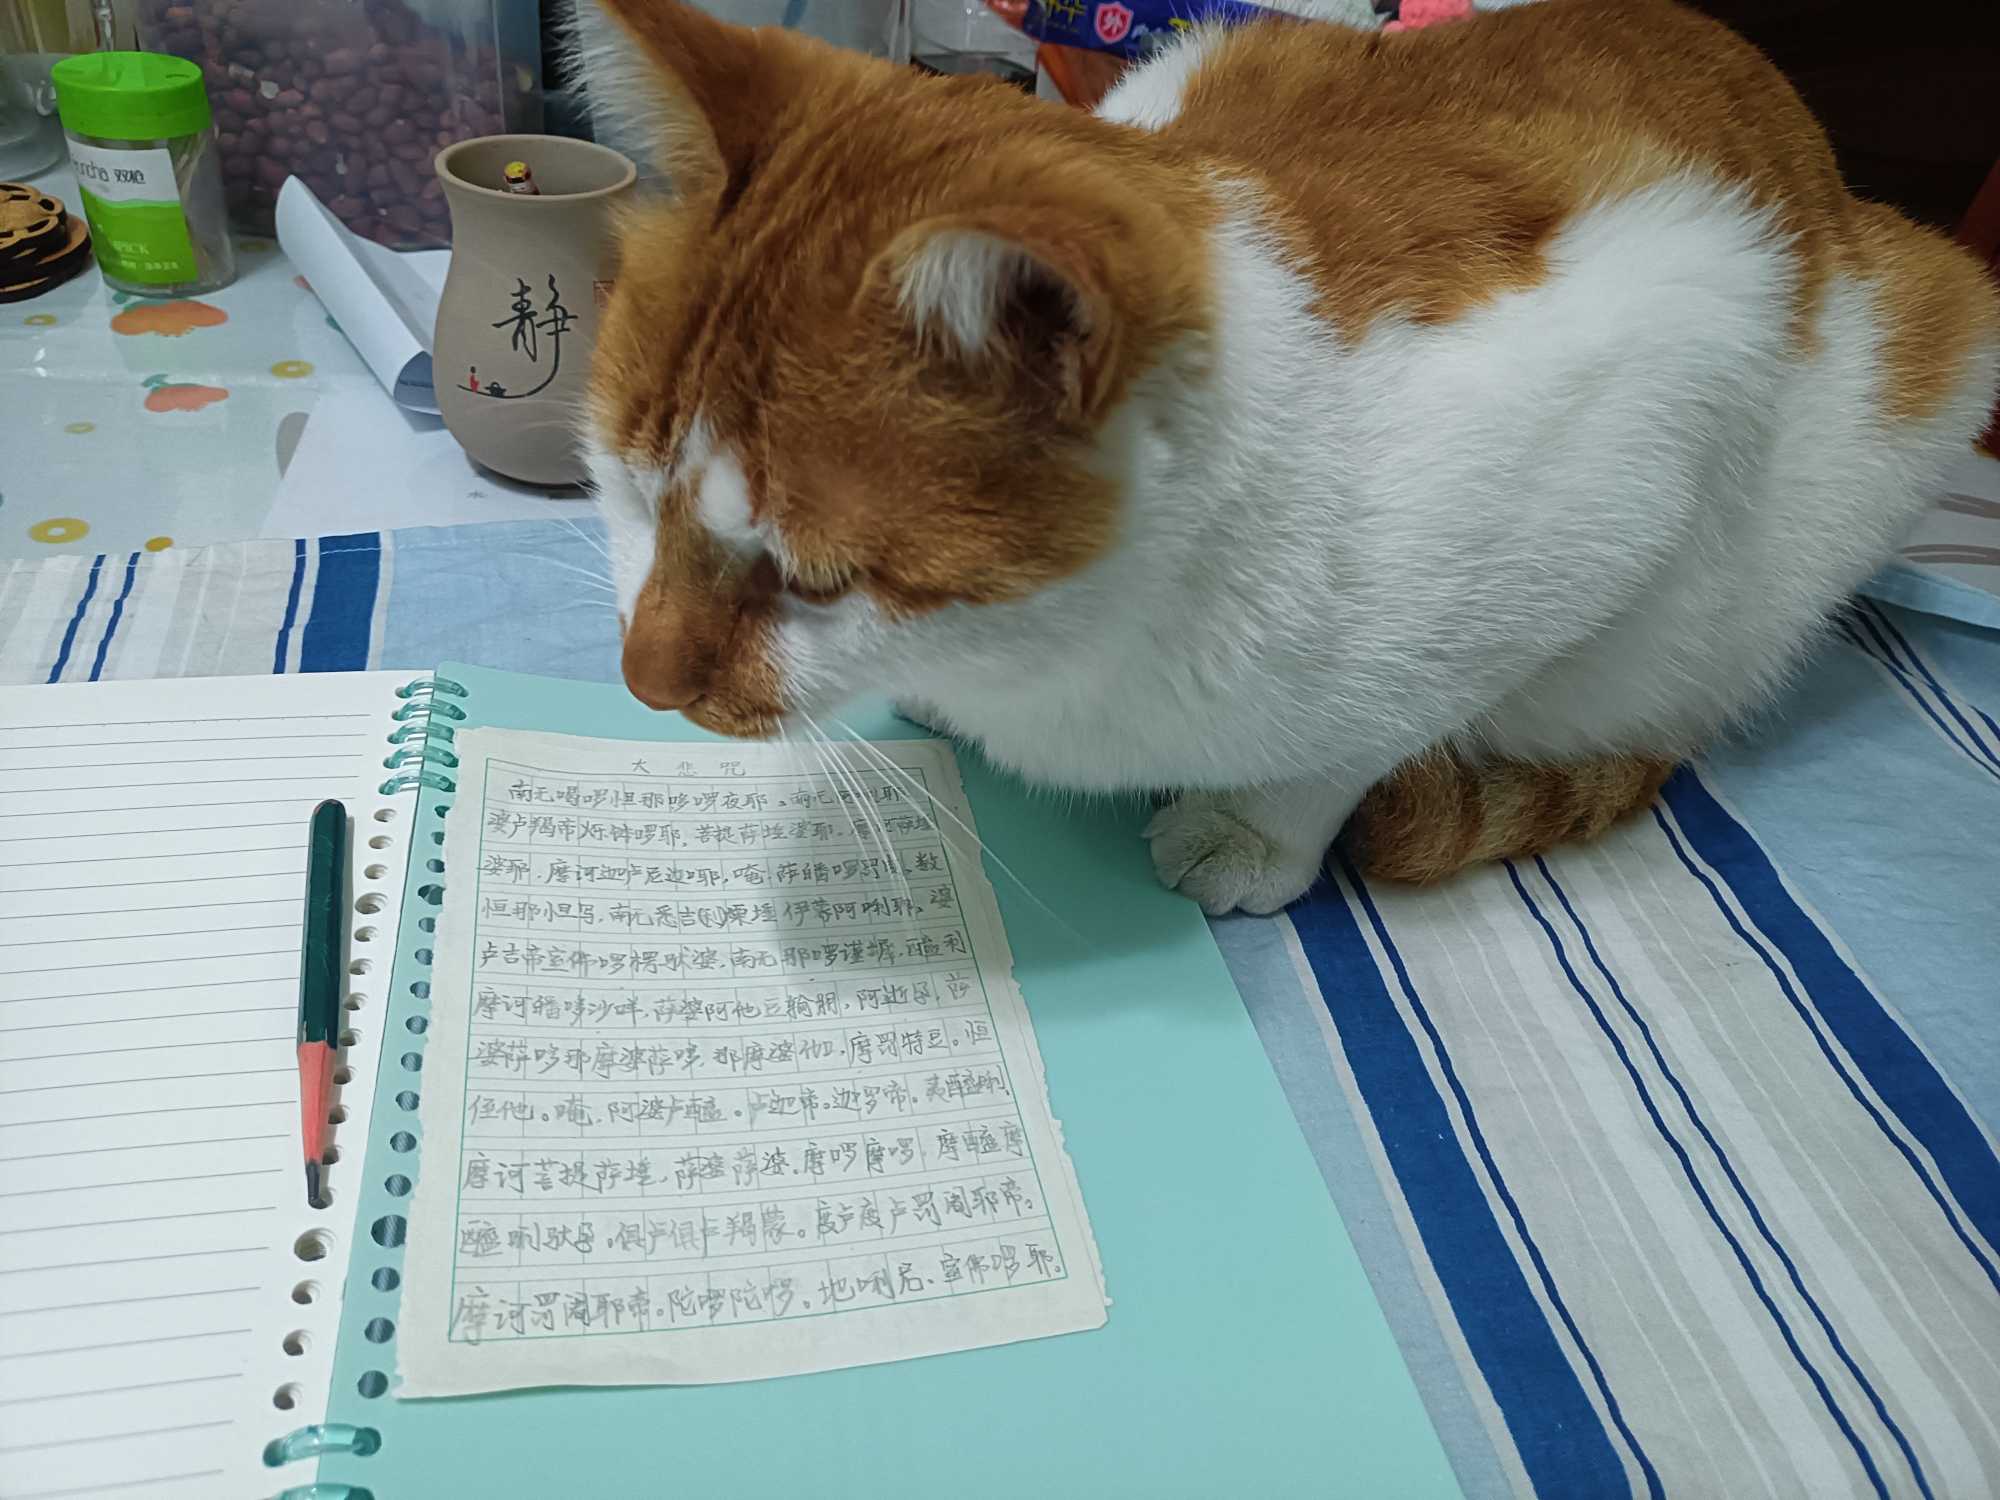 外
uncha 双枪
PICK
静
水
大悲咒
南无喝啰怛那哆啰夜耶。南无阿唎耶
婆卢羯帝烁钵啰耶,菩提萨埵婆耶,摩诃萨埵
婆耶,摩诃迦卢尼迦耶,唵,萨皤啰罚曳,数
怛那怛写,南无悉吉(利)栗埵伊蒙阿唎耶,婆
卢吉帝室佛啰楞驮婆,南无那啰谨墀,醯利
摩诃皤哆沙咩,萨婆阿他豆输朋,阿逝孕,萨
婆萨哆那摩婆萨哆,那摩婆伽,摩罚特豆。怛
侄他。唵,阿婆卢醯。卢迦帝。迦罗帝。夷醯唎,
摩诃菩提萨埵,萨婆萨婆,摩啰摩啰,摩醯摩
醯唎驮孕。俱卢俱卢羯蒙。度卢度卢罚阇耶帝。
摩诃罚阇耶帝。陀啰陀啰。地唎尼,室佛啰耶。